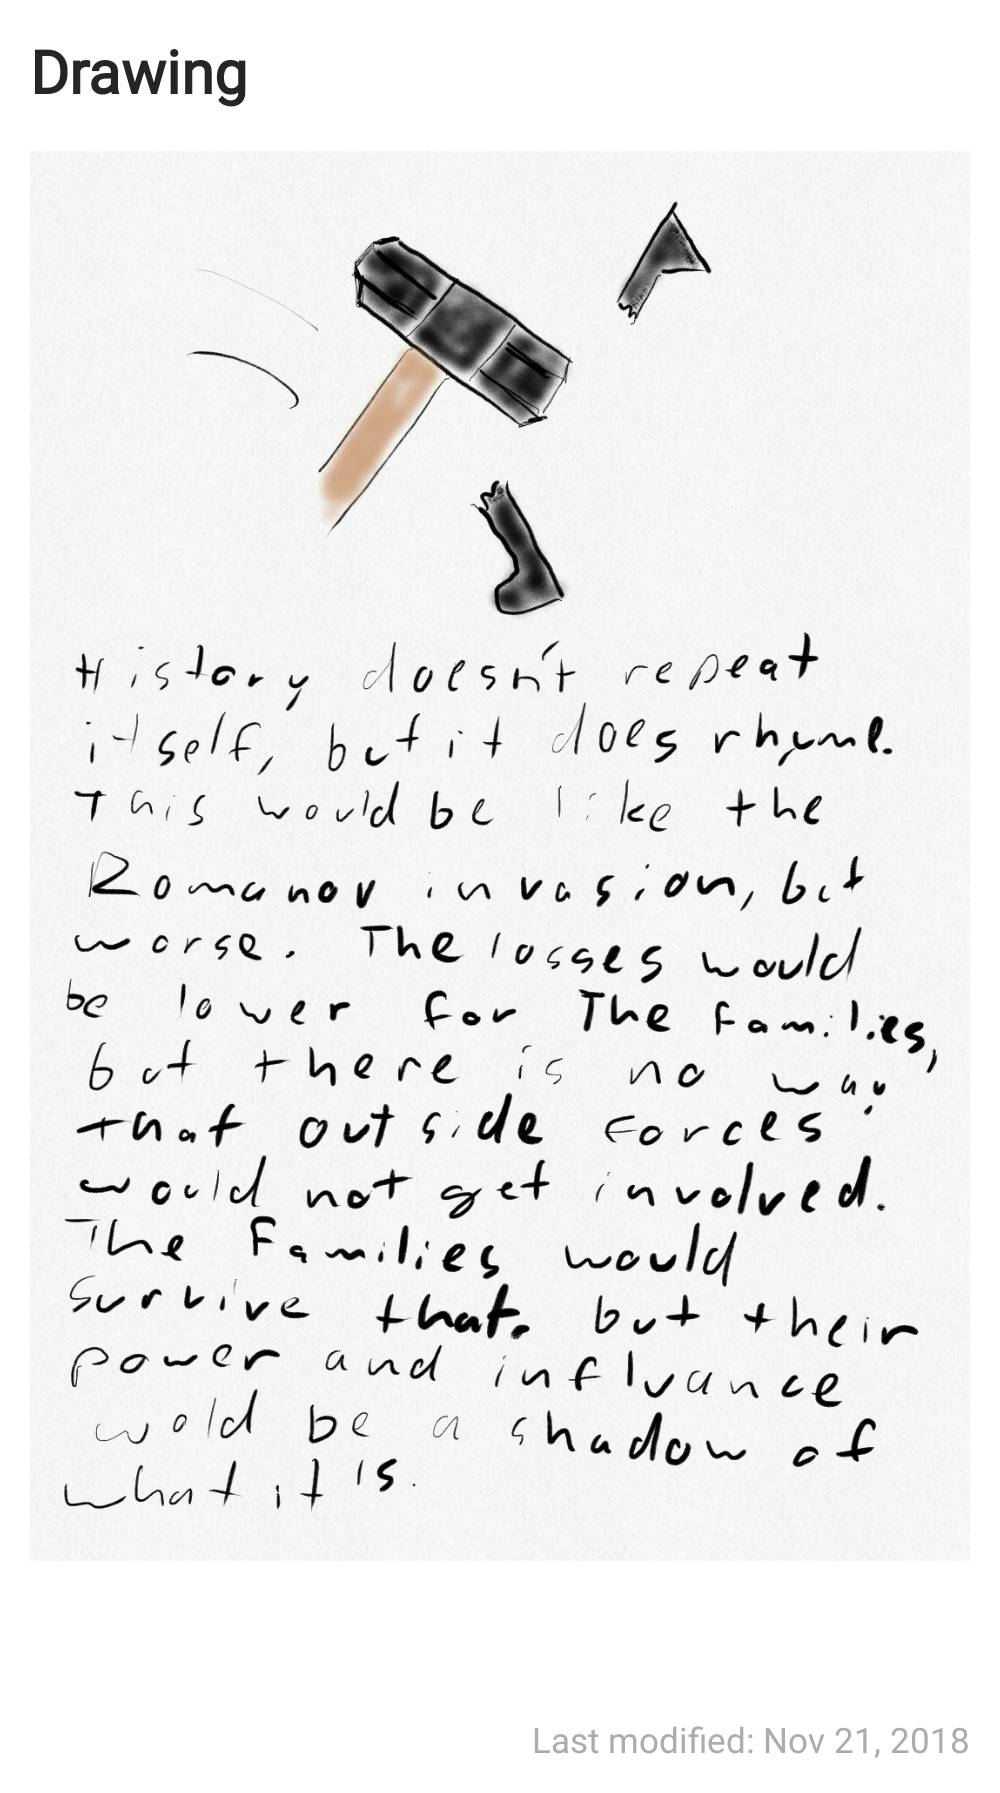 Drawing
History doesn't repeat
itself, but it does rhyme.
This would be like the
Romanov invasion, but
worse. The losses would
be lower for The Families,
but there is no way
that outside forces
would not get involved.
The Families would
survive that. but their
power and influance
wold be a shadow of
what it is.
Last modified: Nov 21, 2018